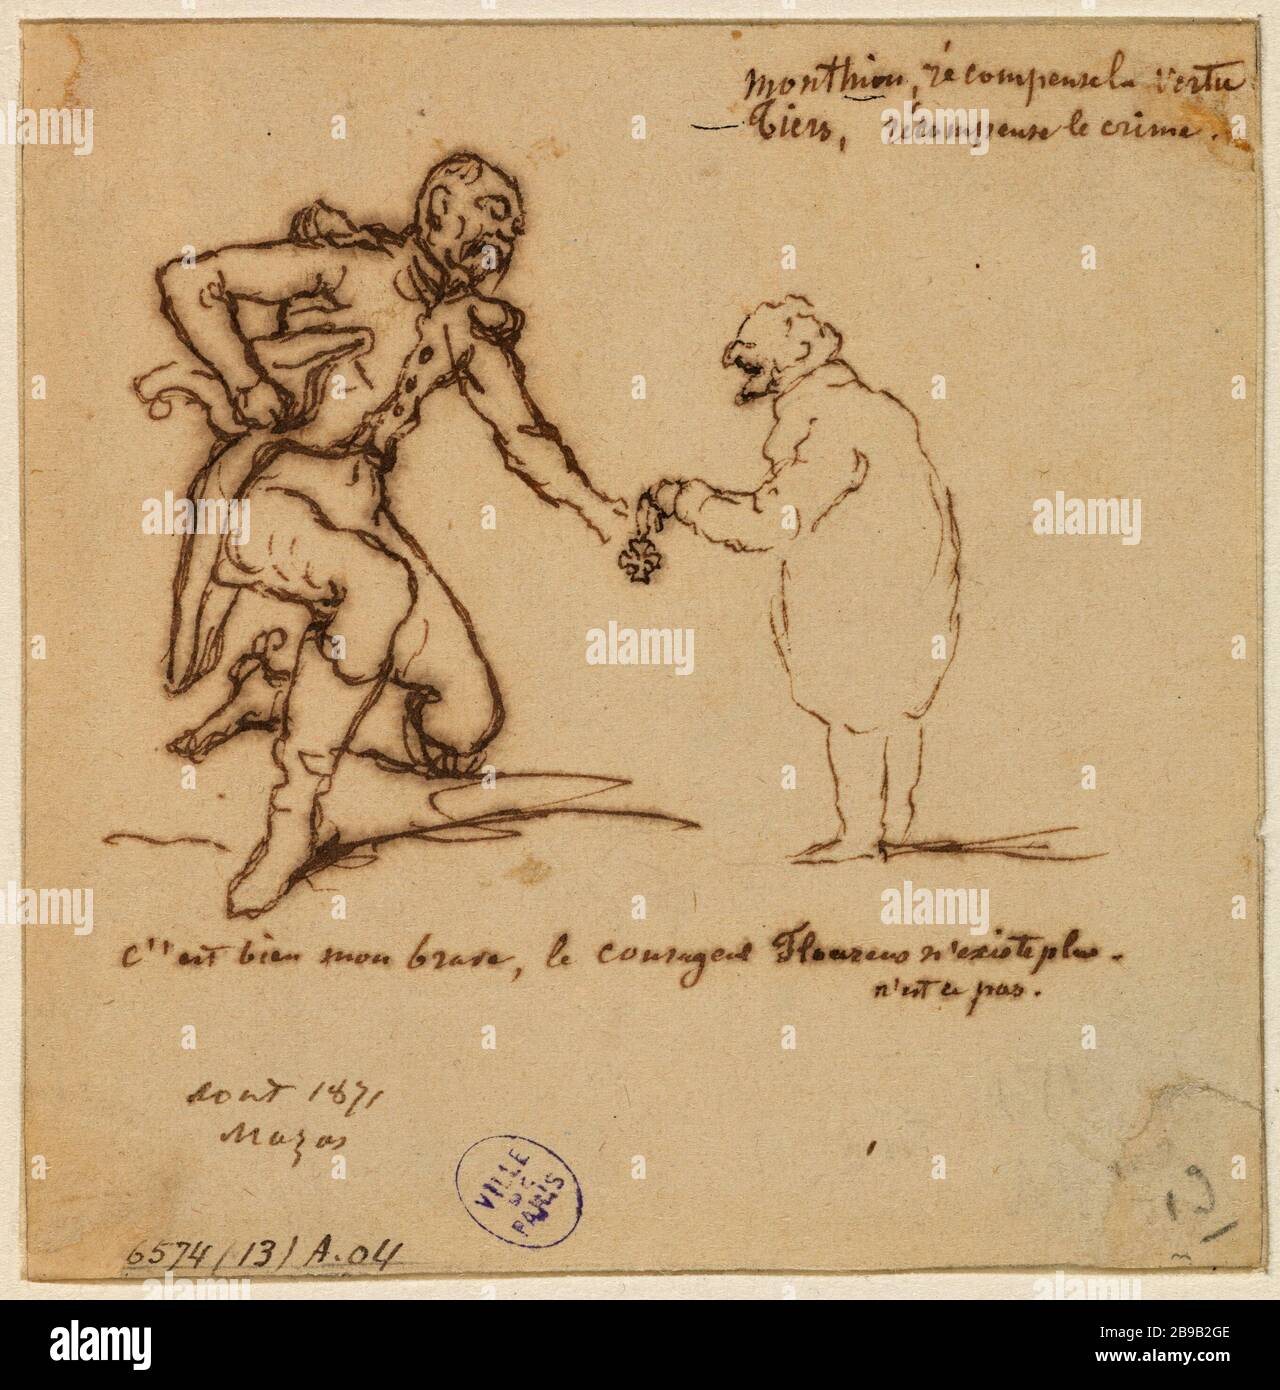 Monthion, récompense la vertu
Tiers, récompense le crime.
C''est bien mon brave, le courageux Flourens n'existe plus.
n'est ce pas.
Aout 1871
Mazas
VILLE
DE
PARIS
6574 (13) A.04
alamy
alamy
Image ID: 2B9B2GE
www.alamy.com